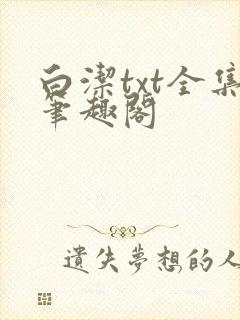 白潔txt全集
筆趣閣
遺失夢想的人